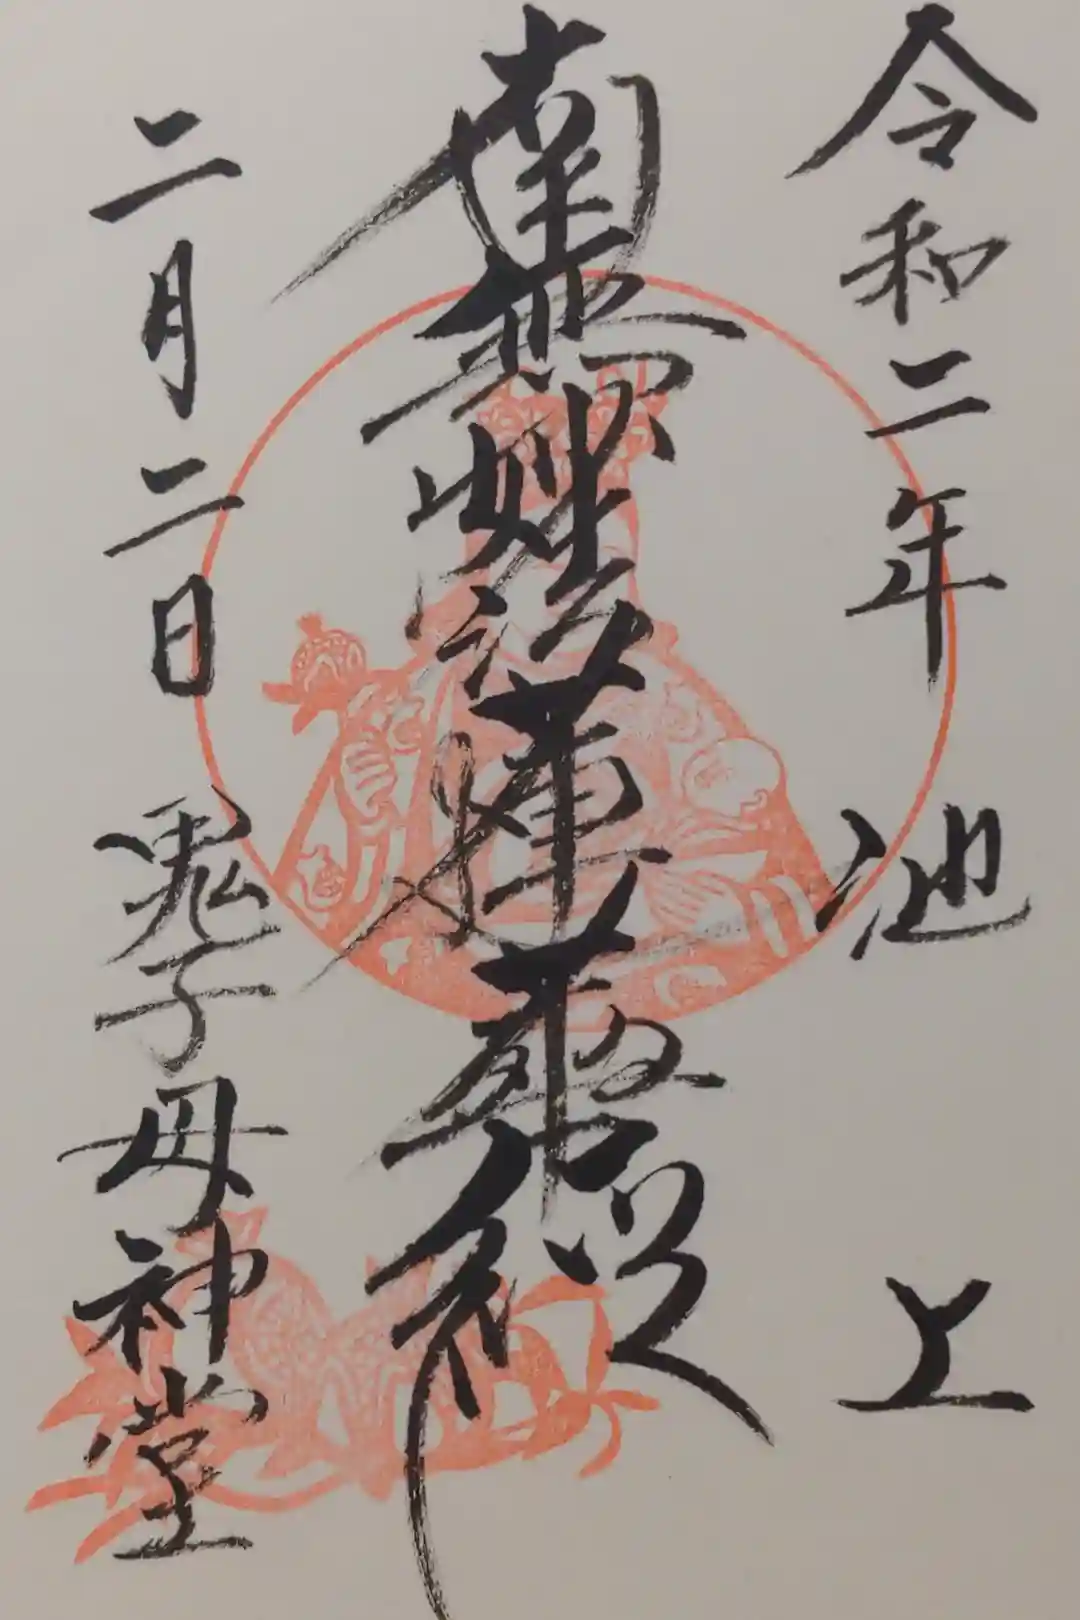 令和二年 池 上
南無妙法蓮華経
二月二日 鬼子母神堂